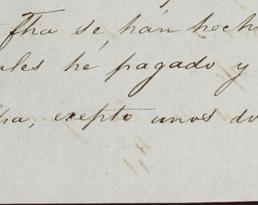 fha se, hán hech
ales he pagado y
ha, exepto unos do